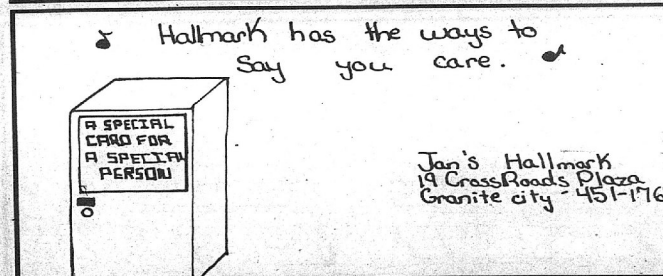 Hallmark has the ways to
Say you care.
A SPECIAL
CARD FOR
A SPECIAL
PERSON
Jan's Hallmark
19 CrossRoads Plaza
Granite city - 451-176